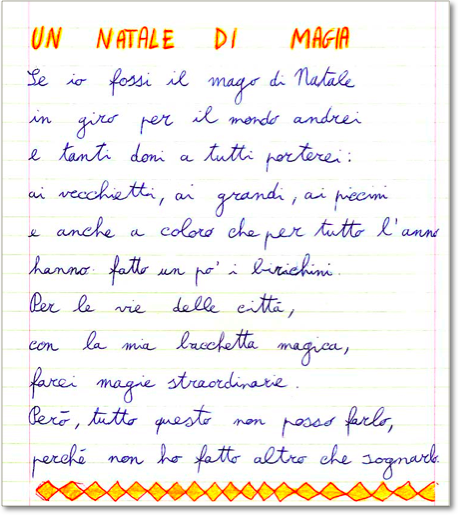 UN NATALE DI MAGIA
Se io fossi il mago di Natale
in giro per il mondo andrei
e tanti doni a tutti porterei:
ai vecchietti, ai grandi, ai piccini
e anche a coloro che per tutto l'anno
hanno fatto un po' i birichini.
Per le vie delle città,
con la mia bacchetta magica,
farei magie straordinarie.
Però, tutto questo non posso farlo,
perché non ho fatto altro che sognarlo.